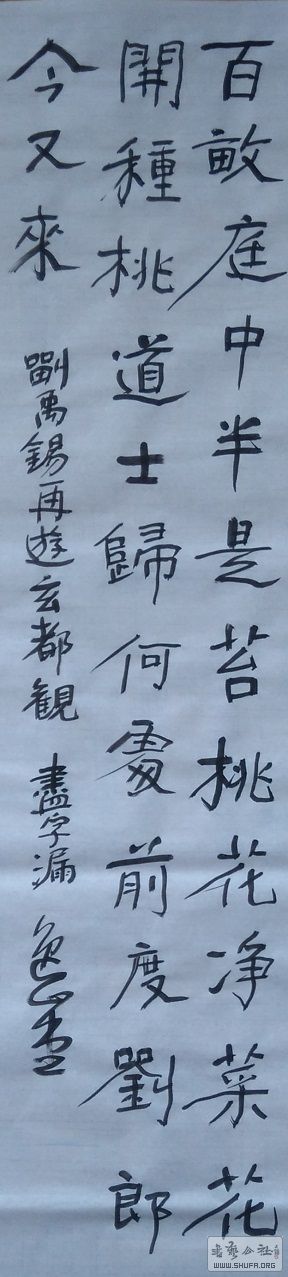 百畝庭中半是苔桃花净菜花
開種桃道士歸何處前度劉郎
今又來 劉禹錫再遊玄都観 盡字漏
书艺公社
WWW.SHUFA.ORG